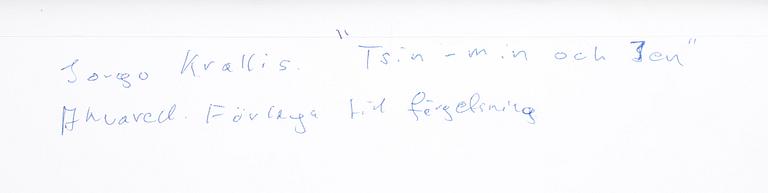 Jorgo Krallis. "Tsin-min och Jen"
Akvarell. Förlaga till färgelsning